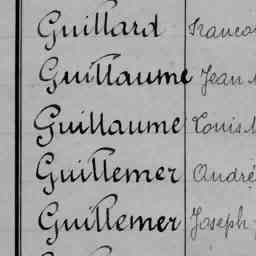 Guillard
Guillaume Jean
Guillaume Louis
Guillemer André
Guillemer Joseph